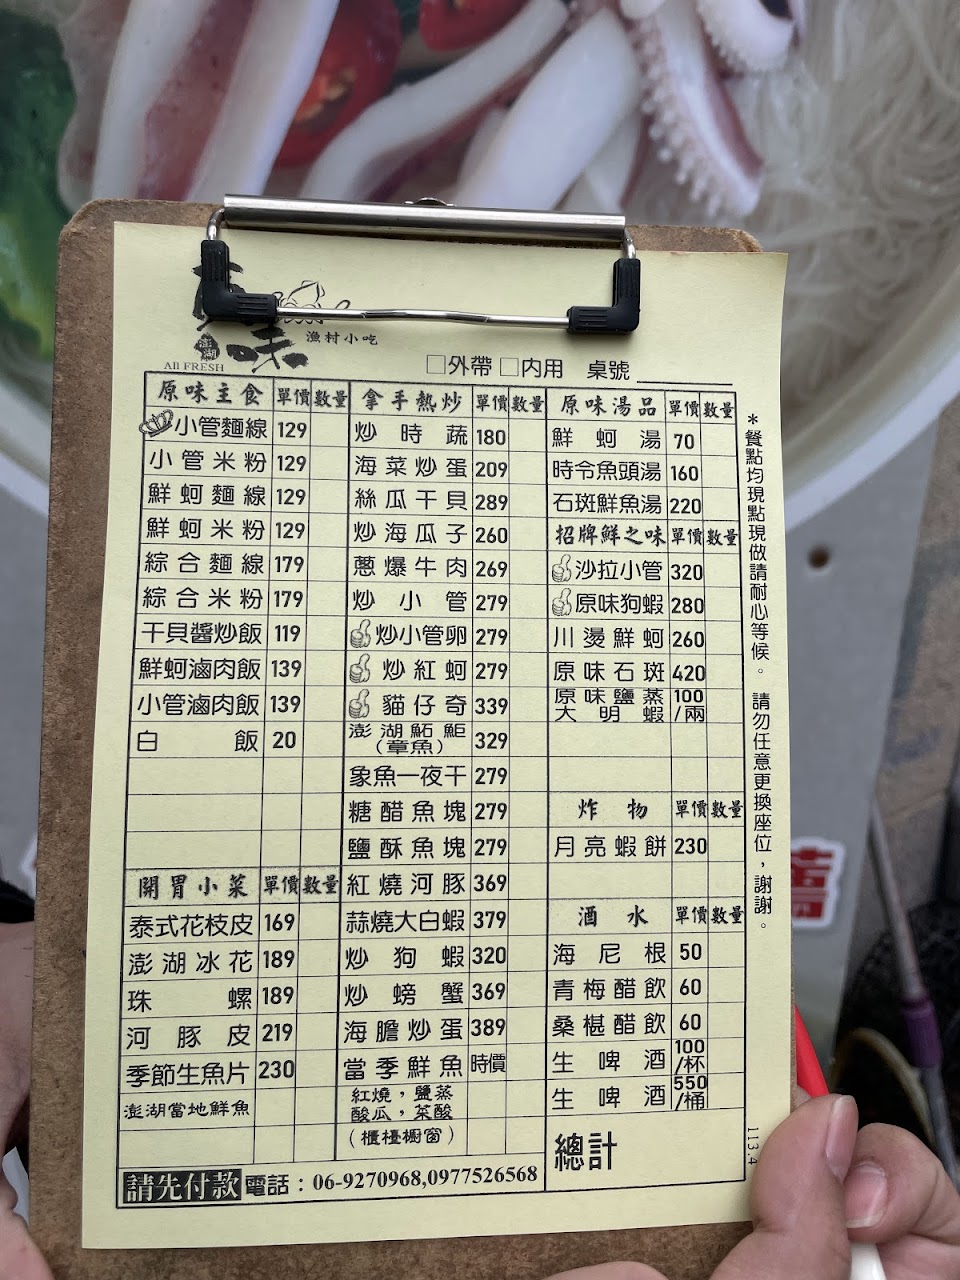 原味
澎湖
All FRESH
漁村小吃
□外帶 □內用 桌號
原味主食 單價 數量
小管麵線 129
小管米粉 129
鮮蚵麵線 129
鮮蚵米粉 129
綜合麵線 179
綜合米粉 179
干貝醬炒飯 119
鮮蚵滷肉飯 139
小管滷肉飯 139
白飯 20
開胃小菜 單價 數量
泰式花枝皮 169
澎湖冰花 189
珠螺 189
河豚皮 219
季節生魚片 230
澎湖當地鮮魚
拿手熱炒 單價 數量
炒時蔬 180
海菜炒蛋 209
絲瓜干貝 289
炒海瓜子 260
蔥爆牛肉 269
炒小管 279
炒小管卵 279
炒紅蚵 279
貓仔奇 339
澎湖鮖鮔
(章魚) 329
象魚一夜干 279
糖醋魚塊 279
鹽酥魚塊 279
紅燒河豚 369
蒜燒大白蝦 379
炒狗蝦 320
炒螃蟹 369
海膽炒蛋 389
當季鮮魚 時價
紅燒，鹽蒸
酸瓜，菜酸
(櫃檯櫥窗)
原味湯品 單價 數量
鮮蚵湯 70
時令魚頭湯 160
石斑鮮魚湯 220
招牌鮮之味 單價 數量
沙拉小管 320
原味狗蝦 280
川燙鮮蚵 260
原味石斑 420
原味鹽蒸 100
大明蝦 /兩
炸物 單價 數量
月亮蝦餅 230
酒水 單價 數量
海尼根 50
青梅醋飲 60
桑椹醋飲 60
生啤酒 100/杯
生啤酒 550/桶
總計
請先付款 電話：06-9270968,0977526568
＊餐點均現點現做請耐心等候。 請勿任意更換座位，謝謝。
113.4